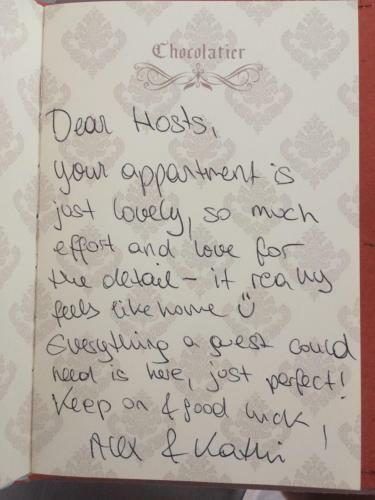 Chocolatier
Dear Hosts,
your appartment is
just lovely, so much
effort and love for
the detail - it really
feels like home ü
Everything a guest could
need is here, just perfect!
Keep on & good luck!
Alex & Kathi